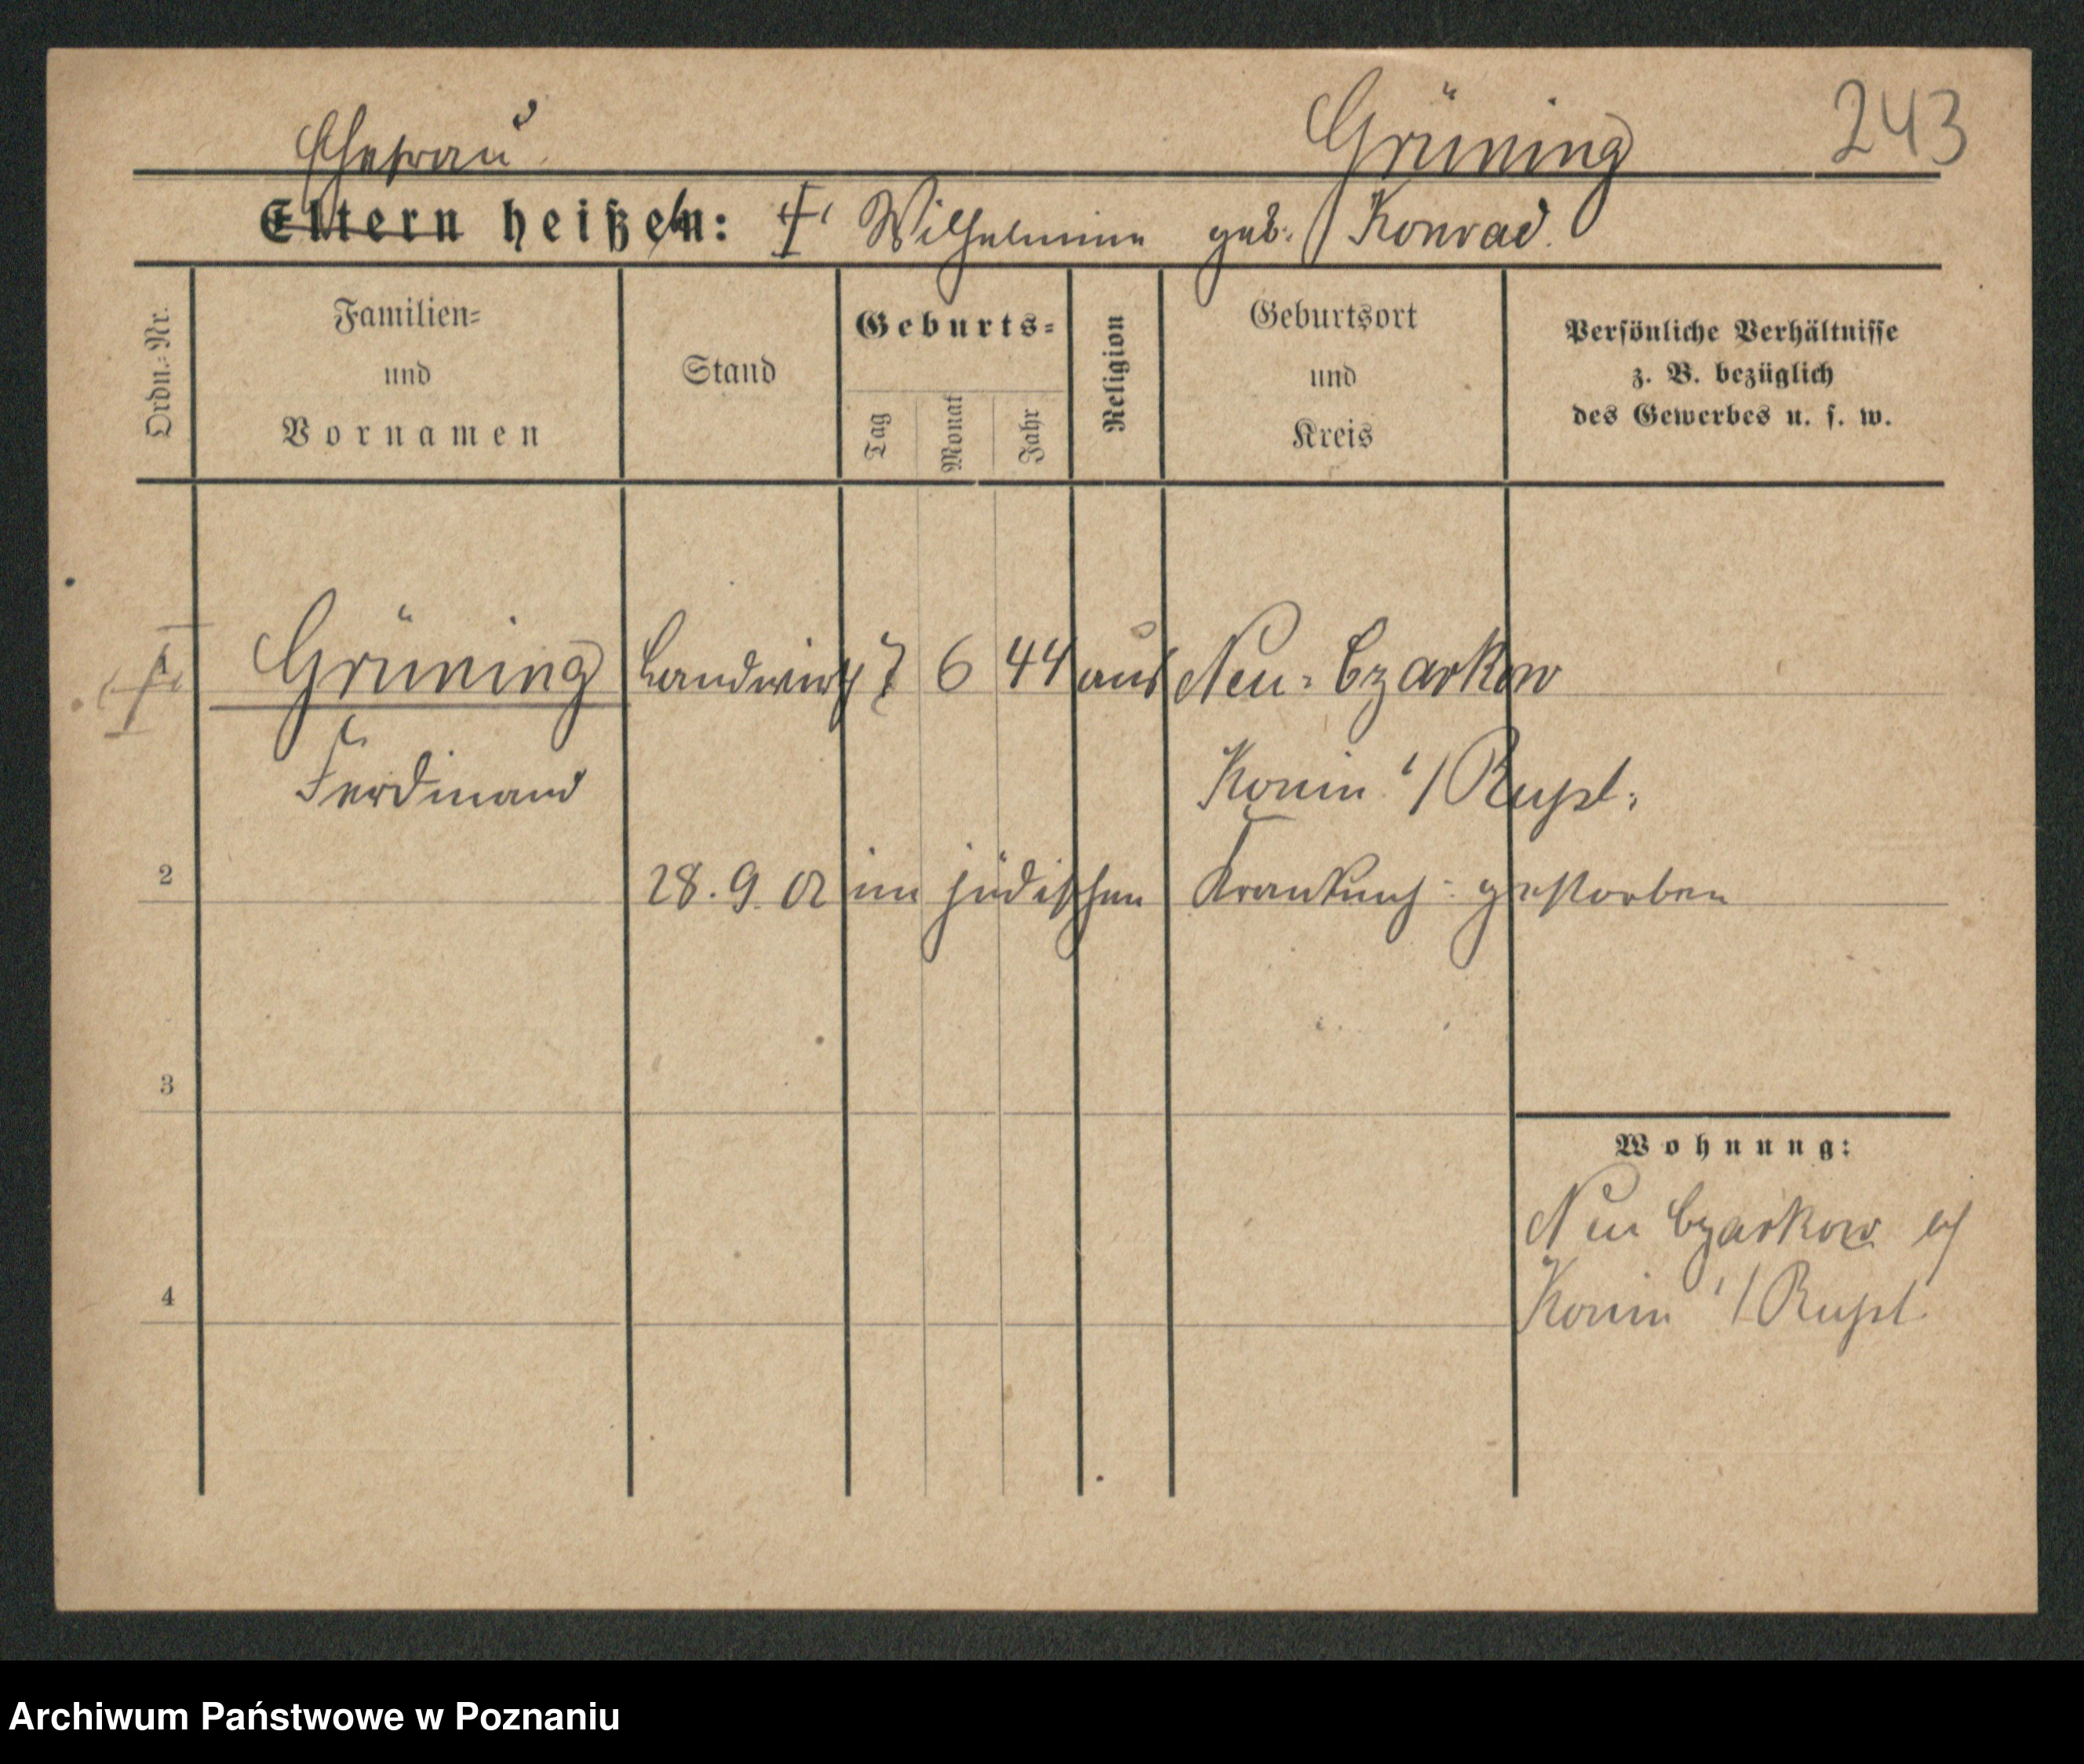 Ehefrau Grüning 243
Eltern heißen: Wilhelmine geb. Konrad.
Ordn.-Nr.
Familien-
und
Vornamen
Stand
Geburts-
Tag
Monat
Jahr
Religion
Geburtsort
und
Kreis
Persönliche Verhältnisse
z. B. bezüglich
des Gewerbes u. s. w.
1 Grüning Landwirth 7 6 44 aus Neu-Czarkow
Ferdinand Konin i/Rußl.
2 28.9.02 im jüdischen Krankenh: gestorben
3
Wohnung:
Neu Czarkow
4 Konin i/Rußl.
Archiwum Państwowe w Poznaniu